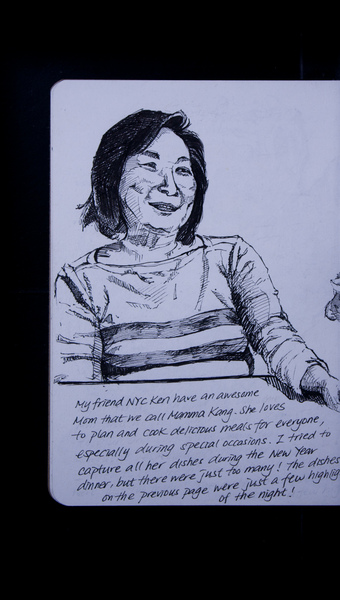 My friend NYC Ken have an awesome
Mom that we call Mamma Kang. She loves
to plan and cook delicious meals for everyone,
especially during special occasions. I tried to
capture all her dishes during the New Year
dinner, but there were just too many! The dishes
on the previous page were just a few highlig
of the night!